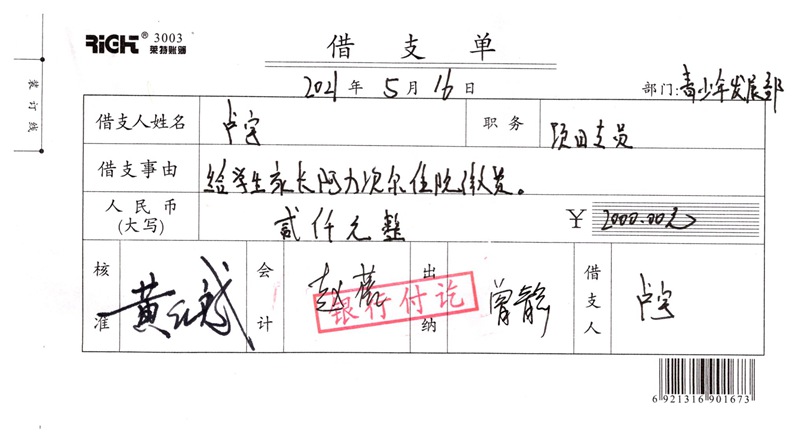 RiGHT® 3003
莱特账簿
借支单
2021 年 5 月 16 日
部门:青少年发展部
装订线
借支人姓名 卢宇 职务 项目专员
借支事由 给学生家长阿力次尔住院缴费。
人民币(大写) 贰仟元整 ¥ 2000.00元
核准 会计 赵 出纳 曾静 借支人 卢宇
银行付讫
6 921316 901673